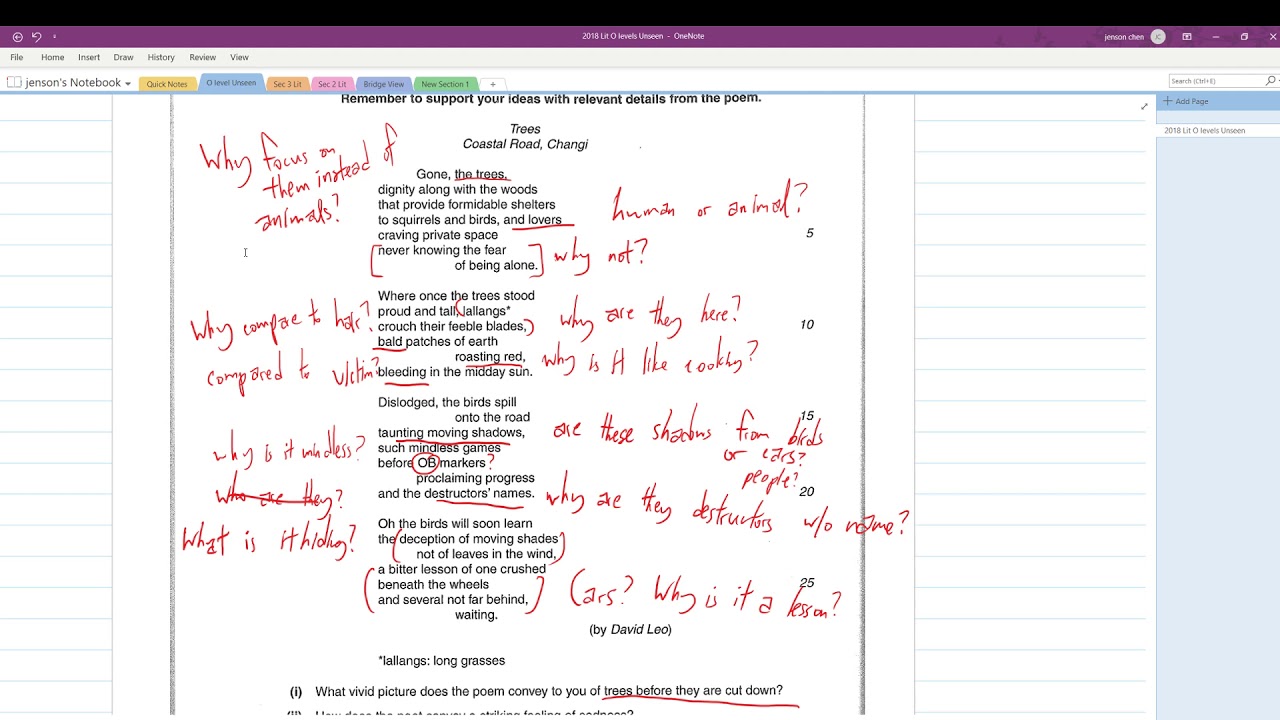 2018 Lit O levels Unseen - OneNote
jenson chen
JC
File Home Insert Draw History Review View
jenson's Notebook
Quick Notes
O level Unseen
Sec 3 Lit
Sec 2 Lit
Bridge View
New Section 1
+
Search (Ctrl+E)
+ Add Page
2018 Lit O levels Unseen
Remember to support your ideas with relevant details from the poem.
Trees
Coastal Road, Changi
Why focus on
them instead of
animals?
Gone, the trees,
dignity along with the woods
that provide formidable shelters
to squirrels and birds, and lovers
human or animal?
craving private space
5
never knowing the fear
of being alone.
why not?
Where once the trees stood
proud and tall, lallangs*
crouch their feeble blades,
10
why are they here?
Why compare to hair?
bald patches of earth
roasting red,
why is it like cooking?
compared to victim?
bleeding in the midday sun.
Dislodged, the birds spill
onto the road
15
taunting moving shadows,
are these shadows from birds
or cars?
people?
such mindless games
why is it mindless?
before OB markers?
proclaiming progress
and the destructors' names.
20
who are they?
why are they destructors w/o name?
What is it hiding?
Oh the birds will soon learn
the deception of moving shades
not of leaves in the wind,
a bitter lesson of one crushed
beneath the wheels
25
and several not far behind,
waiting.
Cars? Why is it a lesson?
(by David Leo)
*lallangs: long grasses
(i) What vivid picture does the poem convey to you of trees before they are cut down?
(ii) How does the poet convey a striking feeling of sadness?